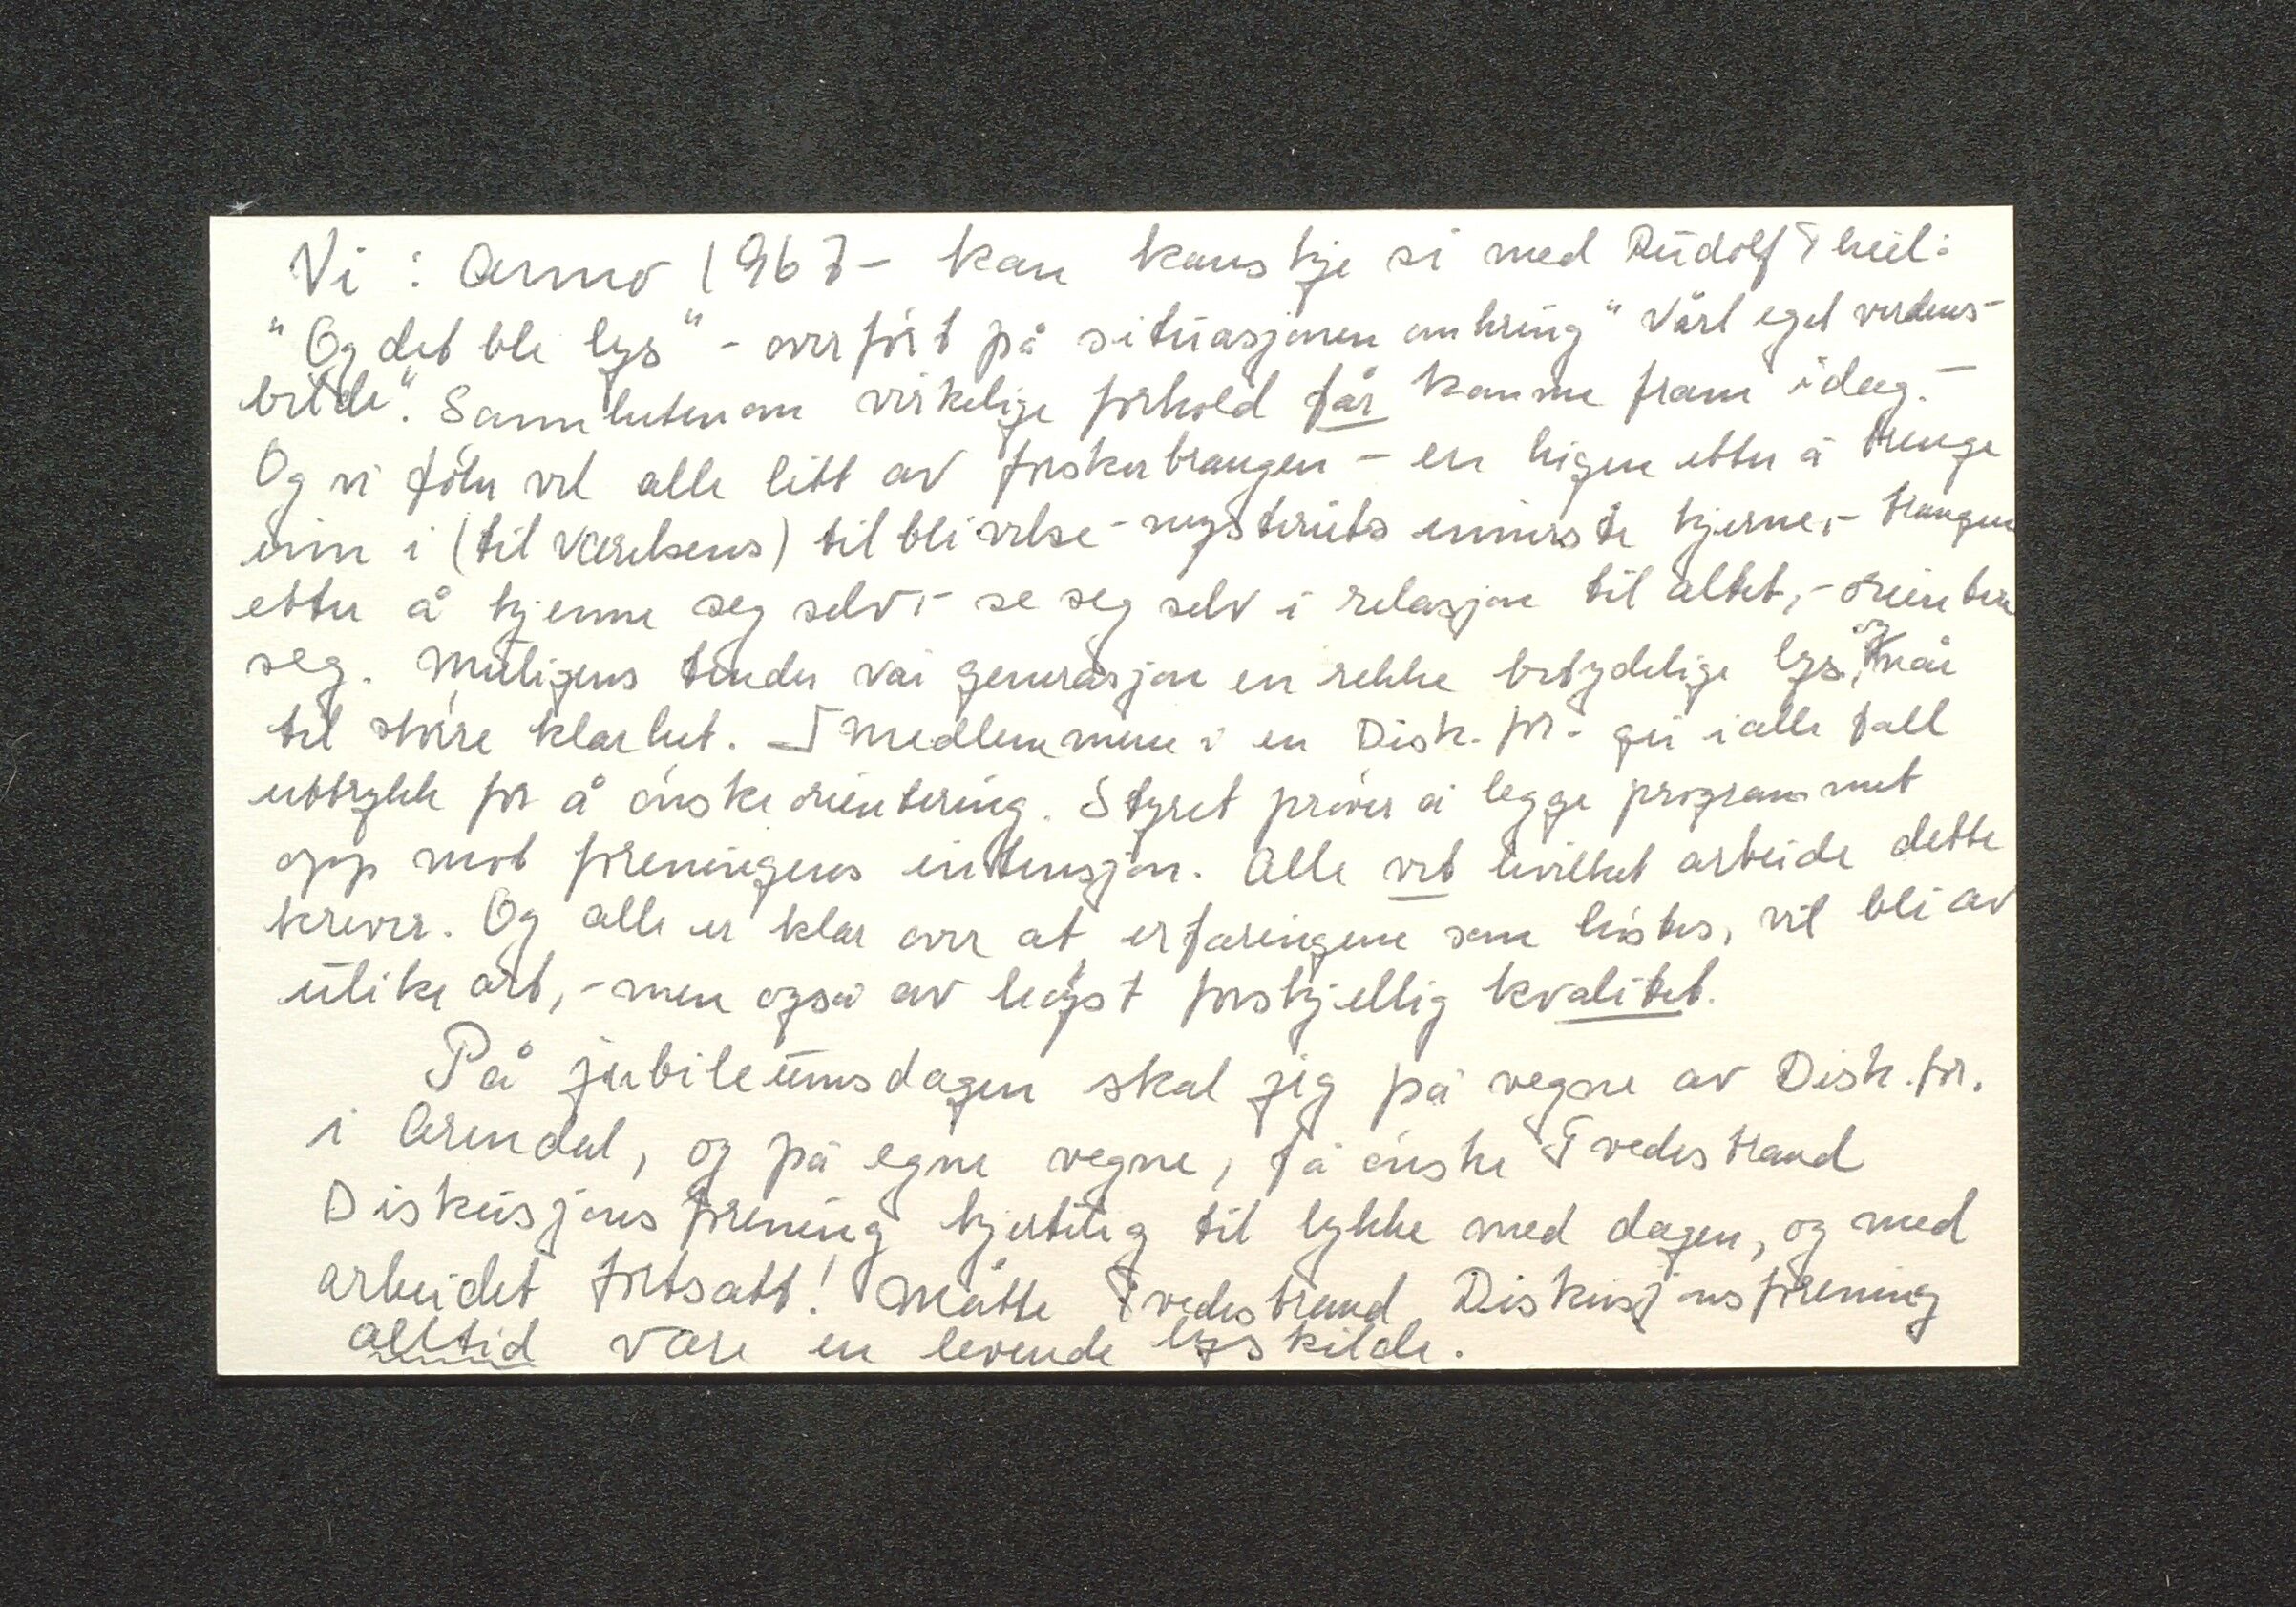 Vi: Anno 1967 - kan kanskje si med Rudolf Thiel:
"Og det ble lys" - overført på situasjonen omkring "Vårt eget verdens-
bilde". Sannheten om virkelige forhold får komme fram idag. -
Og vi føler vel alle litt av forskertrangen - en higen etter å trenge
inn i (tilværelsens) tilblivelse-mysteriets innerste kjerne, - trangen
etter å kjenne seg selv, - se seg selv i relasjon til altet, - orientere
seg. Muligens tender vår generasjon en rekke betydelige lys, og når
til større klarhet. Medlemmene i en Disk. for. gir i alle fall
uttrykk for å ønske orientering. Styret prøver å legge programmet
opp mot foreningens intensjon. Alle vet hvilket arbeide dette
krever. Og alle er klar over at erfaringene som høstes, vil bli av
ulike art, - men også av høyst forskjellig kvalitet.
På jubileumsdagen skal jeg på vegne av Disk. for.
i Arendal, og på egne vegne, få ønske Tvedestrand
Diskusjonsforening hjertelig til lykke med dagen, og med
arbeidet fortsatt! Måtte Tvedestrand Diskusjonsforening
alltid være en levende lyskilde.